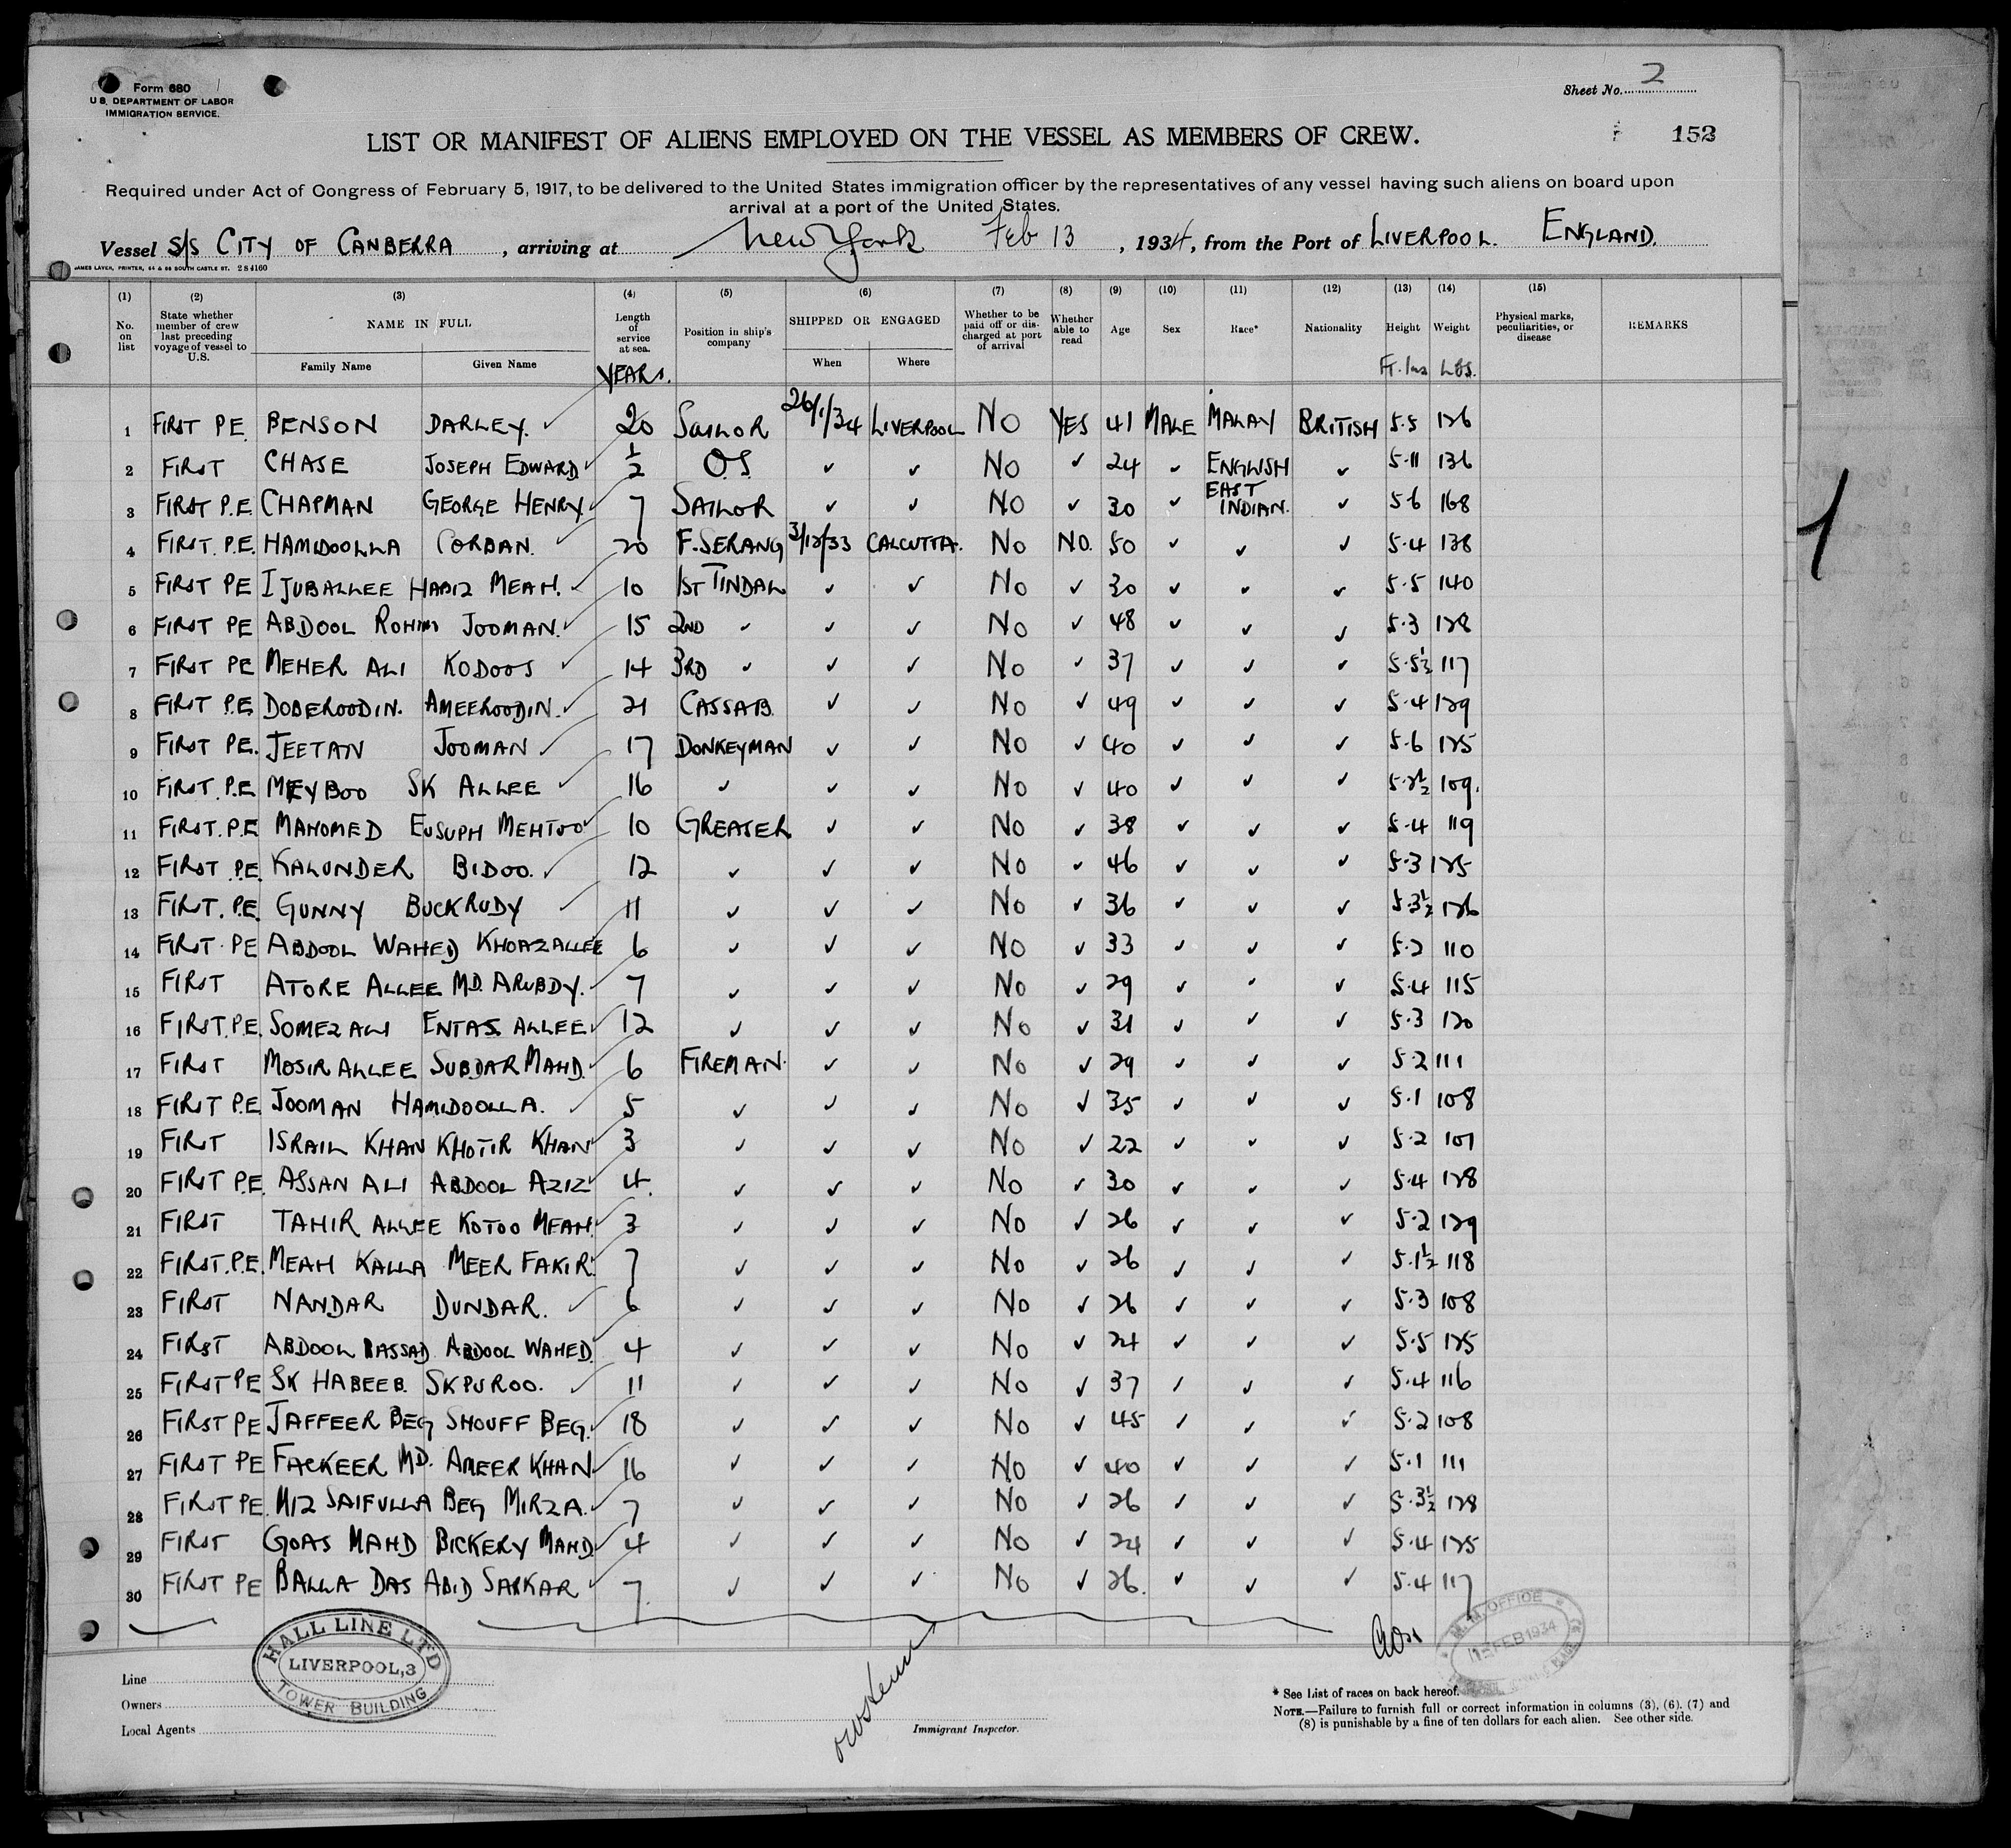 Form 680
U.S. DEPARTMENT OF LABOR
IMMIGRATION SERVICE.
Sheet No. 2
LIST OR MANIFEST OF ALIENS EMPLOYED ON THE VESSEL AS MEMBERS OF CREW.
152
Required under Act of Congress of February 5, 1917, to be delivered to the United States immigration officer by the representatives of any vessel having such aliens on board upon
arrival at a port of the United States.
Vessel S/S CITY OF CANBERRA, arriving at New York Feb 13, 1934, from the Port of LIVERPOOL. ENGLAND.
JAMES LAVER, PRINTER, 64 & 66 SOUTH CASTLE ST. 284160
(1) (2) (3) (4) (5) (6) (7) (8) (9) (10) (11) (12) (13) (14) (15)
No. on list
State whether member of crew last preceding voyage of vessel to U.S.
NAME IN FULL
Family Name Given Name
Length of service at sea.
YEARS.
Position in ship's company
SHIPPED OR ENGAGED
When Where
Whether to be paid off or discharged at port of arrival
Whether able to read
Age
Sex
Race*
Nationality
Height
Ft. Ins
Weight
LBS.
Physical marks, peculiarities, or disease
REMARKS
1 FIRST PE BENSON DARLEY. ✓ 20 SAILOR 26/1/34 LIVERPOOL NO YES 41 MALE MALAY BRITISH 5.5 126
2 FIRST CHASE JOSEPH EDWARD ✓ 1/2 O.S. ✓ ✓ NO ✓ 24 ✓ ENGLISH ✓ 5.11 136
3 FIRST P.E. CHAPMAN GEORGE HENRY ✓ 7 SAILOR ✓ ✓ NO ✓ 30 ✓ EAST INDIAN. ✓ 5.6 168
4 FIRST. P.E. HAMIDOOLLA CORBAN. ✓ 20 F. SERANG 3/12/33 CALCUTTA. NO NO. 50 ✓ ✓ ✓ 5.4 138
5 FIRST PE IJUBALLEE HABIZ MEAH. ✓ 10 1ST TINDAL ✓ ✓ NO ✓ 30 ✓ ✓ ✓ 5.5 140
6 FIRST PE ABDOOL ROHIM JOOMAN. ✓ 15 2ND ✓ ✓ ✓ NO ✓ 48 ✓ ✓ ✓ 5.3 128
7 FIRST PE MEHER ALI KODOOS ✓ 14 3RD ✓ ✓ ✓ NO ✓ 37 ✓ ✓ ✓ 5.5½ 117
8 FIRST P.E DOBEROODIN. AMEEROODIN. ✓ 21 CASSAB. ✓ ✓ NO ✓ 49 ✓ ✓ ✓ 5.4 129
9 FIRST PE. JEETAN JOOMAN ✓ 17 DONKEYMAN ✓ ✓ NO ✓ 40 ✓ ✓ ✓ 5.6 125
10 FIRST. P.E MEYBOO SK ALLEE ✓ 16 ✓ ✓ ✓ NO ✓ 40 ✓ ✓ ✓ 5.2½ 109.
11 FIRST. P.E MAHOMED EUSUPH MEHTOO ✓ 10 GREASER ✓ ✓ NO ✓ 38 ✓ ✓ ✓ 5.4 119
12 FIRST P.E. KALUNDER BIDOO. ✓ 12 ✓ ✓ ✓ NO ✓ 46 ✓ ✓ ✓ 5.3 125
13 FIRST. P.E. GUNNY BUCKRUDY ✓ 11 ✓ ✓ ✓ NO ✓ 36 ✓ ✓ ✓ 5.3½ 126
14 FIRST. PE ABDOOL WAHED KHOAZALLEE 6 ✓ ✓ ✓ NO ✓ 33 ✓ ✓ ✓ 5.2 110
15 FIRST ATORE ALLEE MD. ARUBDY. ✓ 7 ✓ ✓ ✓ NO ✓ 29 ✓ ✓ ✓ 5.4 115
16 FIRST. P.E. SOMEZ ALI ENTAS ALLEE ✓ 12 ✓ ✓ ✓ NO ✓ 31 ✓ ✓ ✓ 5.3 120
17 FIRST MOSIR ALLEE SUBDAR MAHD. ✓ 6 FIREMAN. ✓ ✓ NO ✓ 29 ✓ ✓ ✓ 5.2 111
18 FIRST P.E. JOOMAN HAMIDOOLLA. ✓ 5 ✓ ✓ ✓ NO ✓ 35 ✓ ✓ ✓ 5.1 108
19 FIRST ISRAIL KHAN KHOTIR KHAN ✓ 3 ✓ ✓ ✓ NO ✓ 22 ✓ ✓ ✓ 5.2 107
20 FIRST P.E. ASSAN ALI ABDOOL AZIZ ✓ 4. ✓ ✓ ✓ NO ✓ 30 ✓ ✓ ✓ 5.4 128
21 FIRST TAHIR ALLEE KOTOO MEAH. ✓ 3 ✓ ✓ ✓ NO ✓ 26 ✓ ✓ ✓ 5.2 129
22 FIRST. P.E. MEAH KALLA MEER FAKIR. ✓ 7 ✓ ✓ ✓ NO ✓ 26 ✓ ✓ ✓ 5.1½ 118
23 FIRST NANDAR DUNDAR. ✓ 6 ✓ ✓ ✓ NO ✓ 26 ✓ ✓ ✓ 5.3 108
24 FIRST ABDOOL BASSAD ABDOOL WAHED. ✓ 4 ✓ ✓ ✓ NO ✓ 24 ✓ ✓ ✓ 5.5 125
25 FIRST PE SK HABEEB. SK PUROO. ✓ 11 ✓ ✓ ✓ NO ✓ 37 ✓ ✓ ✓ 5.4 116
26 FIRST PE JAFFEER BEG SHOUFF BEG. ✓ 18 ✓ ✓ ✓ NO ✓ 45 ✓ ✓ ✓ 5.2 108
27 FIRST PE FACKEER MD. AMEER KHAN ✓ 16 ✓ ✓ ✓ NO ✓ 40 ✓ ✓ ✓ 5.1 111
28 FIRST PE. MIZ SAIFULLA BEG MIRZA. ✓ 7 ✓ ✓ ✓ NO ✓ 26 ✓ ✓ ✓ 5.3½ 128
29 FIRST GOAS MAHD BICKERY MAHD ✓ 4 ✓ ✓ ✓ NO ✓ 24 ✓ ✓ ✓ 5.4 125
30 FIRST PE BALLA DAS ABID SARKAR ✓ 7. ✓ ✓ ✓ NO ✓ 26. ✓ ✓ ✓ 5.4 117
HALL LINE LTD
LIVERPOOL, 3
TOWER BUILDING
M.M. OFFICE
FEB 1934
Line
Owners
Local Agents
Immigrant Inspector.
* See List of races on back hereof.
NOTE.—Failure to furnish full or correct information in columns (3), (6), (7) and
(8) is punishable by a fine of ten dollars for each alien. See other side.
1